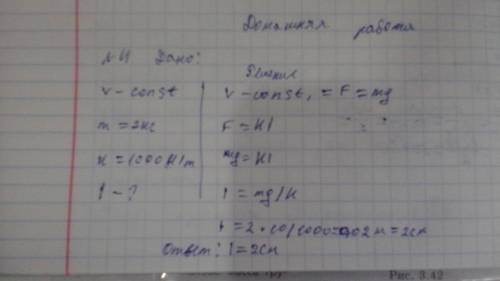 Домашняя работа
№4 Дано:
Решение
v - const
v - const, = F = mg
m = 2кг
F = kl
k = 1000 Н/m
mg = kl
l - ?
l = mg/k
l = 2 * 10/1000 = 0,02 м = 2см
Ответ: l = 2см
Рис. 3.42